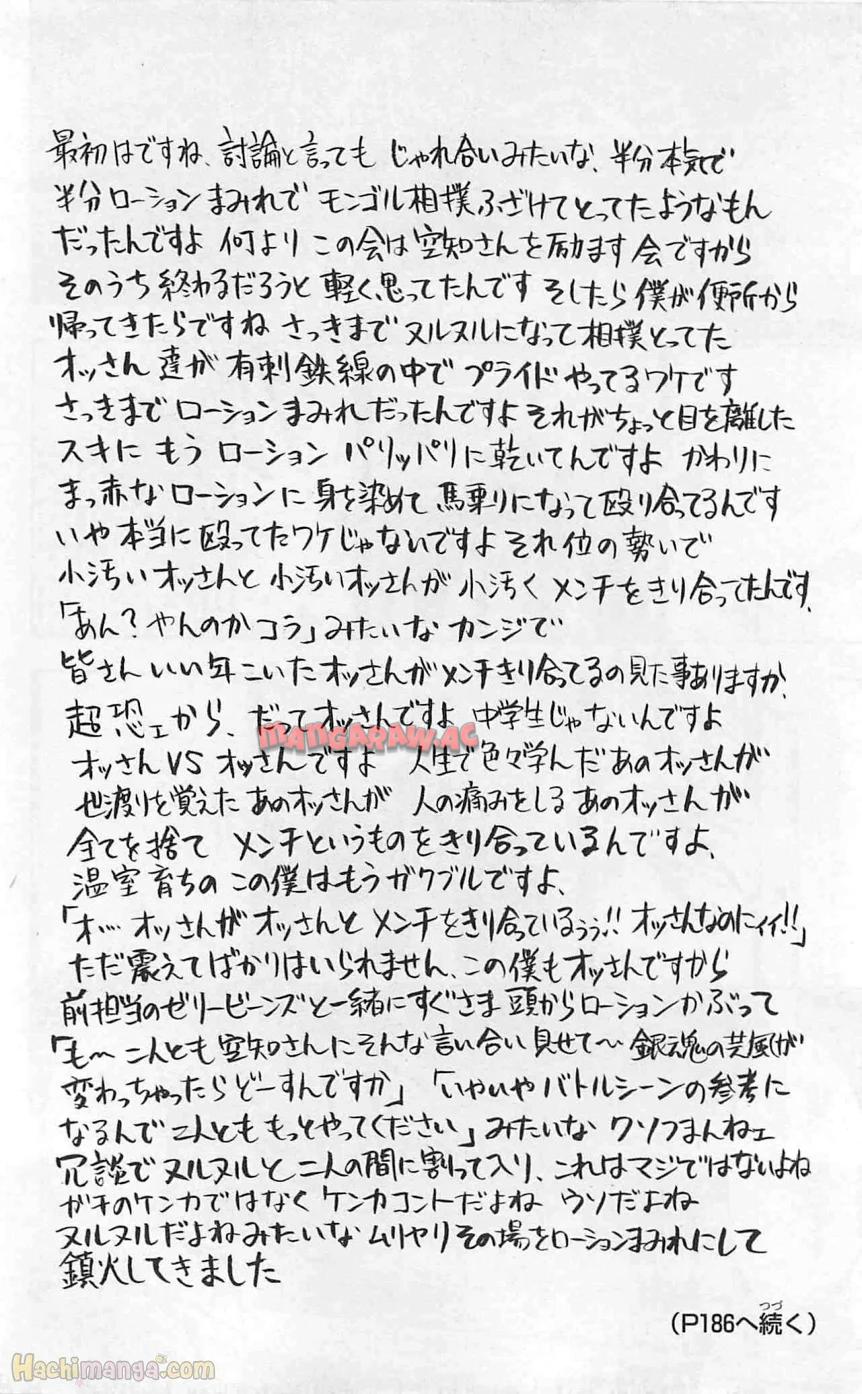 最初はですね、討論と言っても じゃれ合いみたいな、半分本気で
半分ローションまみれで モンゴル相撲ふざけてとってたようなもん
だったんですよ 何より この会は空知さんを励ます会ですから
そのうち終わるだろうと 軽く思ってたんです そしたら僕が便所から
帰ってきたらですね さっきまで ヌルヌルになって相撲とってた
オッさん達が 有刺鉄線の中で プライドやってるワケです
さっきまで ローションまみれだったんですよ それがちょっと目を離した
スキに もう ローション パリッパリに乾いてんですよ かわりに
まっ赤なローションに身を染めて 馬乗りになって殴り合ってるんです
いや本当に殴ってたワケじゃないですよ それ位の勢いで
小汚いオッさんと 小汚いオッさんが 小汚く メンチをきり合ってたんです、
「あん?やんのかコラ」みたいな カンジで
皆さん いい年こいたオッさんがメンチきり合ってるの見た事ありますか、
超恐ェから、だってオッさんですよ 中学生じゃないんですよ
MANGARAW.AC
オッさんVSオッさんですよ 人生で色々学んだあのオッさんが
世渡りを覚えた あのオッさんが 人の痛みをしる あのオッさんが
全てを捨て メンチというものをきり合っているんですよ、
温室育ちのこの僕はもうガクブルですよ、
「オ… オッさんがオッさんと メンチをきり合っているぅぅ!! オッさんなのにィィ!!」
ただ震えてばかりはいられません、この僕もオッさんですから
前担当のゼリービーンズと一緒にすぐさま 頭からローションかぶって
「も〜 二人とも 空知さんにそんな言い合い見せて〜 銀魂の芸風が
変わっちゃったらどーすんですか」「いやいやバトルシーンの参考に
なるんで 二人とももっとやってください」みたいな クソつまんねェ
冗談で ヌルヌルと二人の間に割って入り、これはマジではないよね
ガチのケンカではなく ケンカコントだよね ウソだよね
ヌルヌルだよねみたいな ムリヤリその場をローションまみれにして
鎮火してきました
(P186へ続く)
つづ
Hachimanga.com